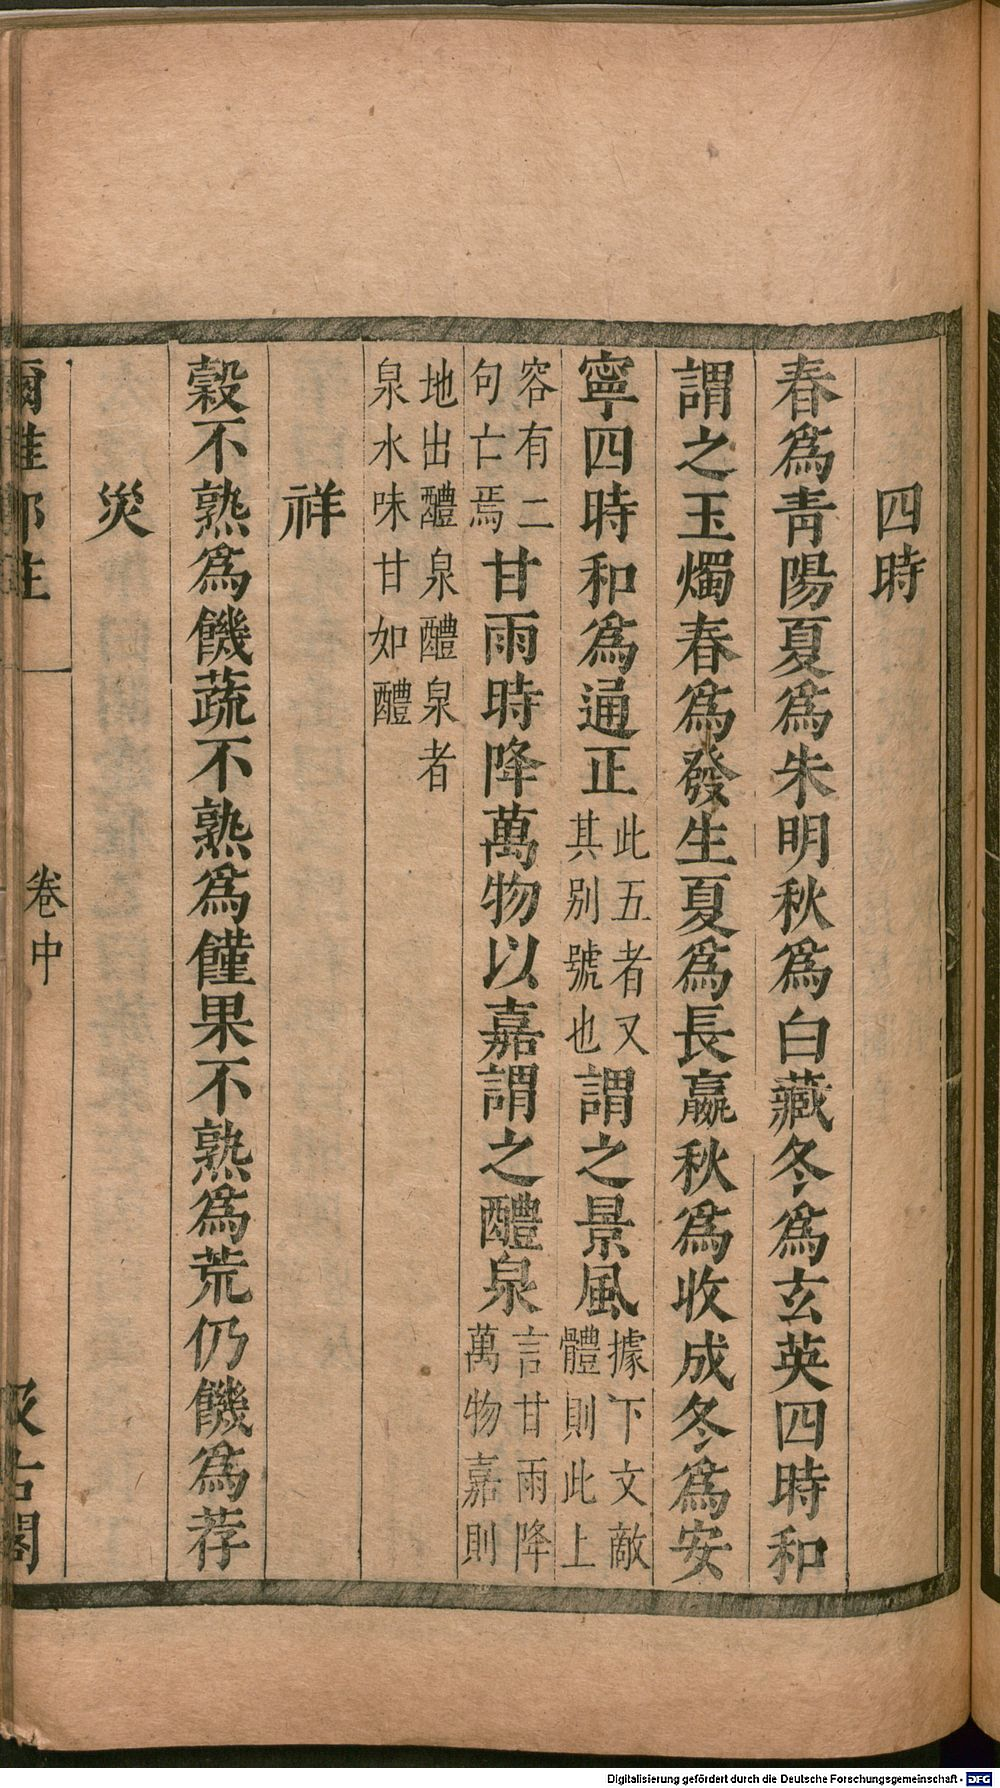 四時
春為青陽夏為朱明秋為白藏冬為玄英四時和
謂之玉燭春為發生夏為長嬴秋為收成冬為安
寧四時和為通正此五者又其別號也謂之景風據下文敵體則此上
容有二句亡焉甘雨時降萬物以嘉謂之醴泉言甘雨降萬物嘉則
地出醴泉醴泉者泉水味甘如醴
祥
穀不熟為饑蔬不熟為饉果不熟為荒仍饑為荐
災
爾雅郭注 卷中 汲古閣
Digitalisierung gefördert durch die Deutsche Forschungsgemeinschaft - DFG